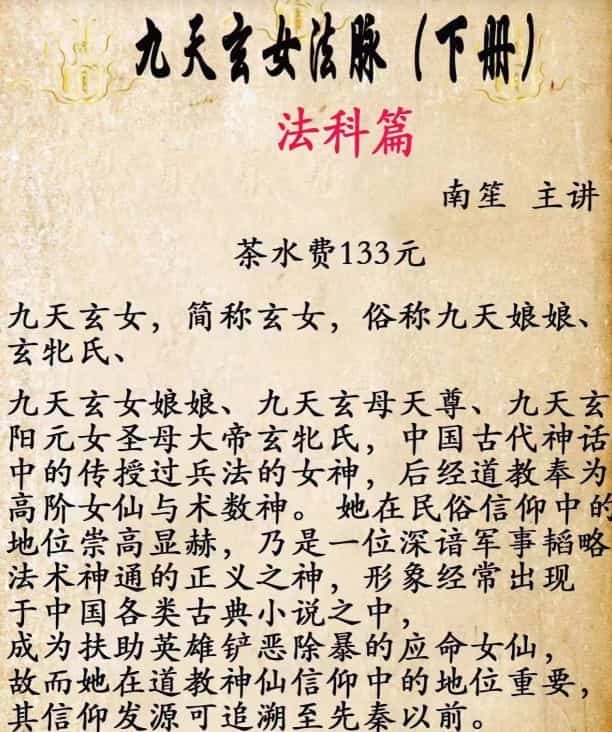 九天玄女法脉（下册）
法科篇
南笙 主讲
茶水费133元
九天玄女，简称玄女，俗称九天娘娘、
玄牝氏、
九天玄女娘娘、九天玄母天尊、九天玄
阳元女圣母大帝玄牝氏，中国古代神话
中的传授过兵法的女神，后经道教奉为
高阶女仙与术数神。她在民俗信仰中的
地位崇高显赫，乃是一位深谙军事韬略
法术神通的正义之神，形象经常出现
于中国各类古典小说之中，
成为扶助英雄铲恶除暴的应命女仙，
故而她在道教神仙信仰中的地位重要，
其信仰发源可追溯至先秦以前。